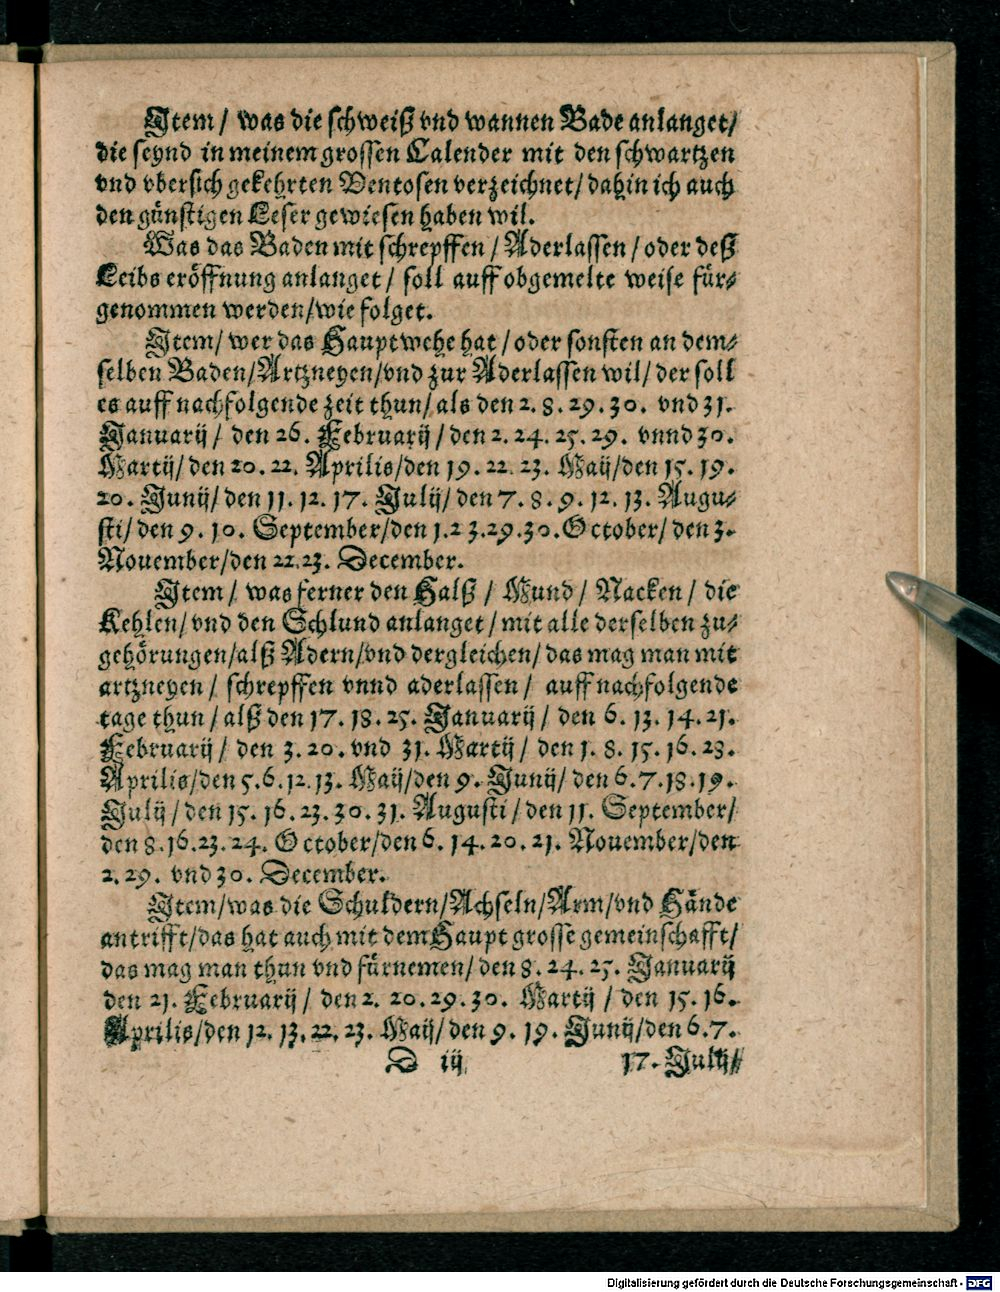 Item/ was die schweiß vnd wannen Bade anlanget/
die seynd in meinem grossen Calender mit den schwartzen
vnd vbersich gekehrten Ventosen verzeichnet/ dahin ich auch
den günstigen Leser gewiesen haben wil.
Was das Baden mit schrepffen/ Aderlassen/ oder deß
Leibs eröffnung anlanget/ soll auff obgemelte weise für-
genommen werden/ wie folget.
Item/ wer das Hauptwehe hat/ oder sonsten an dem-
selben Baden/ Artzneyen/ vnd zur Aderlassen wil/ der soll
es auff nachfolgende zeit thun/ als den 2. 8. 29. 30. vnd 31.
Januarij/ den 26. Februarij/ den 2. 24. 25. 29. vnnd 30.
Martij/ den 20. 22. Aprilis/ den 19. 22. 23. Maij/ den 15. 19.
20. Junij/ den 11. 12. 17. Julij/ den 7. 8. 9. 12. 13. Augu-
sti/ den 9. 10. September/ den 1. 2 3. 29. 30. October/ den 3.
Nouember/ den 22. 23. December.
Item/ was ferner den Halß/ Mund/ Nacken/ die
Kehlen/ vnd den Schlund anlanget/ mit alle derselben zu-
gehörungen/ alß Adern/ vnd dergleichen/ das mag man mit
artzneyen/ schrepffen vnnd aderlassen/ auff nachfolgende
tage thun/ alß den 17. 18. 25. Januarij/ den 6. 13. 14. 21.
Februarij/ den 3. 20. vnd 31. Martij/ den 1. 8. 15. 16. 23.
Aprilis/ den 5. 6. 12. 13. Maij/ den 9. Junij/ den 6. 7. 18. 19.
Julij/ den 15. 16. 23. 30. 31. Augusti/ den 11. September/
den 8. 16. 23. 24. October/ den 6. 14. 20. 21. Nouember/ den
2. 29. vnd 30. December.
Item/ was die Schuldern/ Achseln/ Arm/ vnd Hände
antrifft/ das hat auch mit dem Haupt grosse gemeinschafft/
das mag man thun vnd fürnemen/ den 8. 24. 25. Januarij
den 21. Februarij/ den 2. 20. 29. 30. Martij/ den 15. 16.
Aprilis/ den 12. 13. 22. 23. Maij/ den 9. 19. Junij/ den 6. 7.
D iij 17. Julij/
Digitalisierung gefördert durch die Deutsche Forschungsgemeinschaft - DFG